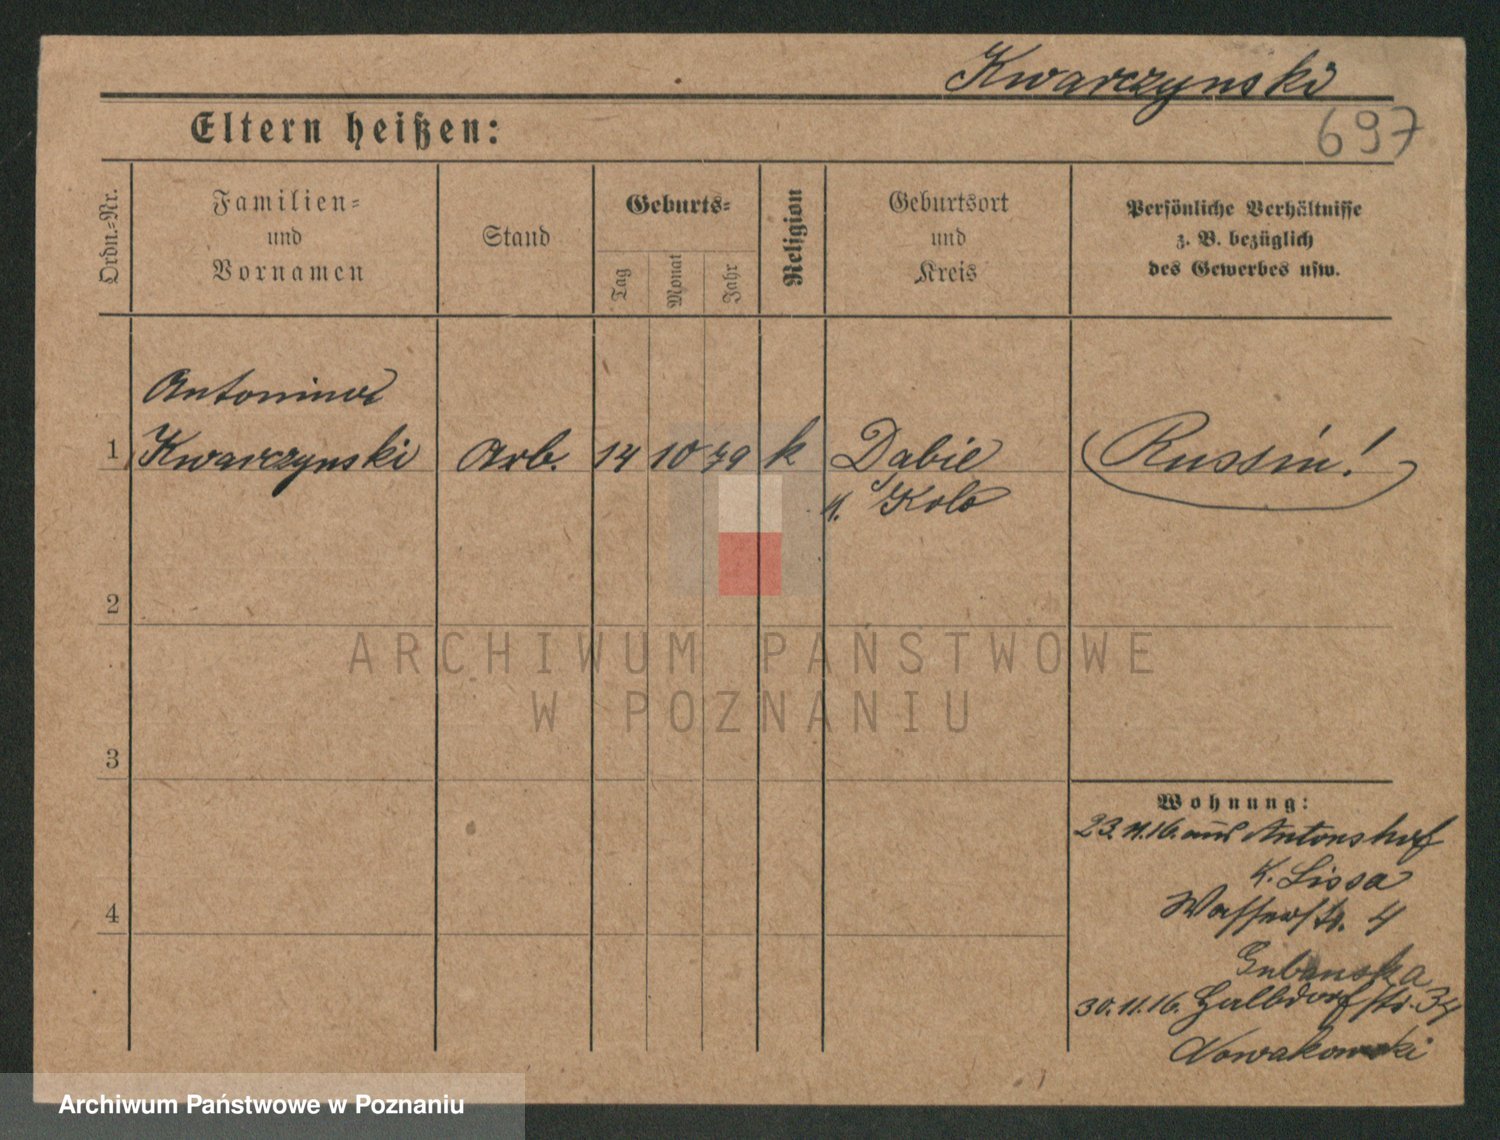 Kwarczynski
697
Eltern heißen:
Ordn.-Nr.
Familien-
und
Vornamen
Stand
Geburts-
Tag
Monat
Jahr
Religion
Geburtsort
und
Kreis
Persönliche Verhältnisse
z. B. bezüglich
des Gewerbes usw.
Antonina
1 Kwarczynski Arb. 14 10 79 k Dabie Russin!
K. Kolo
2
3
4
ARCHIWUM PAŃSTWOWE
W POZNANIU
Wohnung:
23.11.16. aus Antonshof
K. Lissa
Wasserstr. 4
30.11.16. Halbdorfstr. 34
Nowakowski
Archiwum Państwowe w Poznaniu